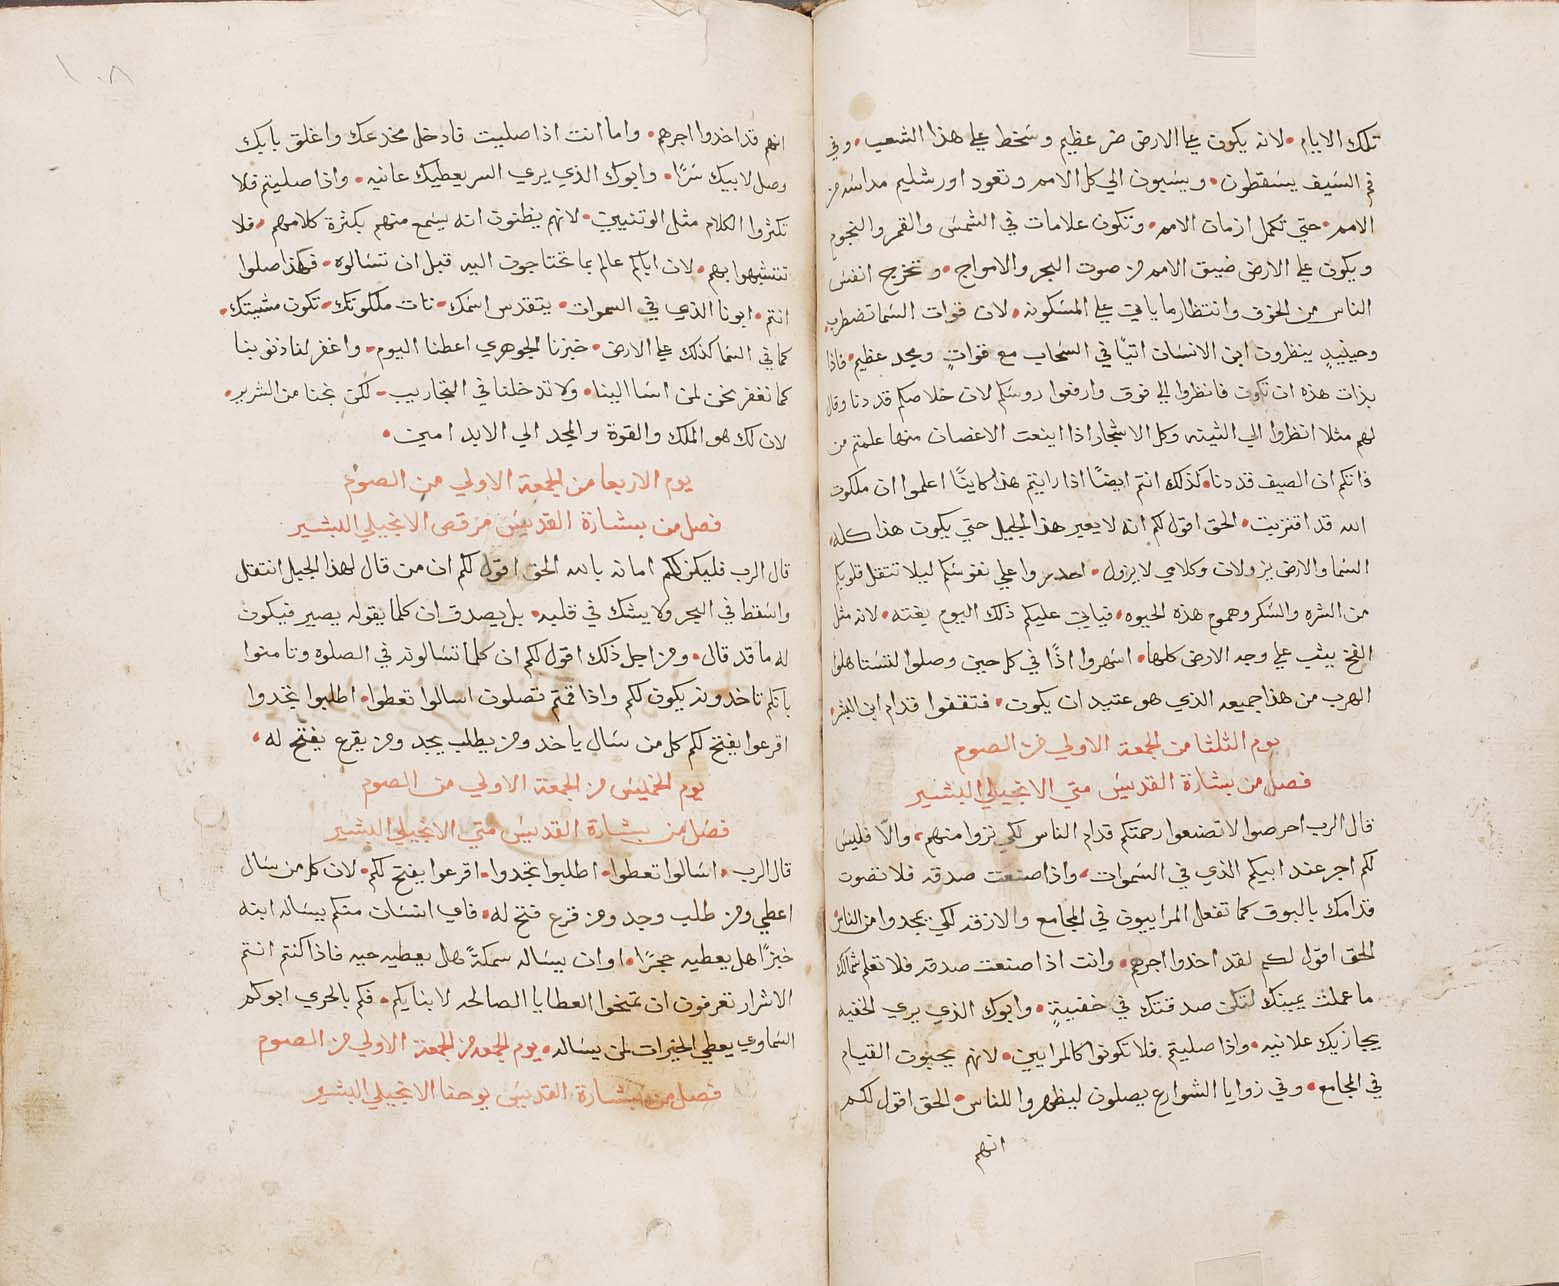 تلك الايام • لانه يكون علي الارض ضر عظيم وسخط علي هذا الشعب • وفي
فم السيف يسقطون • ويسبون الي كل الامم وتعود اورشليم مداسه من
الامم • حتي تكمل ازمان الامم • وتكون علامات في الشمس والقمر والنجوم
ويكون علي الارض ضيق الامم من صوت البحر والامواج • وتخرج انفس
الناس من الخوف وانتظار ما ياتي علي المسكونه • لان قوات السما تضطرب •
وحينيدٍ ينظرون ابن الانسان اتيًا في السحاب مع قواتٍ ومجد عظيم • فاذا
بدات هذه ان تكون فانظروا الي فوق وارفعوا روسكم لان خلاصكم قد دنا وقال
لهم مثلا انظروا الي التينه وكل الاشجار اذا اينعت الاغصان منها علمتم من
ذاتكم ان الصيف قد دنا • كذلك انتم ايضًا اذا رايتم هذا كاينًا اعلموا ان ملكوت
الله قد اقتربت • الحق اقول لكم انه لا يعبر هذا الجيل حتي يكون هذا كله •
السما والارض يزولان وكلامي لا يزول • احدروا علي نفوسكم ليلا تتقل قلوبكم
من الشره والسكر وهموم هذه الحيوه • فياتي عليكم ذلك اليوم بغته • لانه مثل
الفخ يثب علي وجه الارض كلها • اسهروا اذًا في كل حين وصلوا لتستاهلوا
الهرب من هذا جميعه الذي هو عتيد ان يكون • فتقفوا قدام ابن البشر •
يوم الثلثا من الجمعة الاولي من الصوم
فصل من بشارة القديس متي الانجيلي البشير
قال الرب احرصوا لا تضعوا رحمتكم قدام الناس لكي تروا منهم • والّا فليس
لكم اجر عند ابيكم الذي في السموات • واذا صنعت صدقه فلا تصوت
قدامك بالبوق كما تفعل المراييون في المجامع والازقه لكي يمجدوا من الناس
الحق اقول لكم لقد اخدوا اجرهم • وانت اذا صنعت صدقه فلا تعلم شمالك
ما عملت يمينك لتكن صدقتك في خفيةٍ • وابوك الذي يري الخفيه
يجازيك علانيه • واذا صليتم فلا تكونوا كالمرايين • لانهم يحبون القيام
في المجامع • وفي زوايا الشوارع يصلون ليظهروا للناس • الحق اقول لكم
انهم
١٠٨
انهم قد اخدوا اجرهم • واما انت اذا صليت فادخل مخدعك واغلق بابك
وصل لابيك سرًا • وابوك الذي يري السر يعطيك علانيه • واذا صليتم فلا
تكثروا الكلام مثل الوتنيين • لانهم يظنون انه يسمع منهم بكثرة كلامهم • فلا
تتشبهوا بهم • لان اباكم عالم بما تحتاجون اليه قبل ان تسالوه • فهكذا صلوا
انتم • ابونا الذي في السموات • يتقدس اسمك • تات ملكوتك • تكون مشيتك •
كما في السما كذلك علي الارض • خبزنا الجوهري اعطنا اليوم • واغفر لنا ذنوبنا
كما نغفر نحن لمن اسا الينا • ولا تدخلنا في التجاريب • لكن نجنا من الشرير •
لان لك هو الملك والقوة والمجد الي الابد امين •
يوم الاربعا من الجمعة الاولي من الصوم
فصل من بشارة القديس مرقص الانجيلي البشير
قال الرب فليكن لكم امانه بالله الحق اقول لكم ان من قال لهذا الجبل انتقل
واسقط في البحر ولا يشك في قلبه • بل يصدق ان كلما يقوله يصير فيكون
له ما قد قال • ومن اجل ذلك اقول لكم ان كلما تسالونه في الصلوه وتامنوا
بانكم تاخدونه يكون لكم واذا قمتم تصلون اسالوا تعطوا • اطلبوا تجدوا
اقرعوا يفتح لكم كل من سال ياخد ومن يطلب يجد ومن يقرع يفتح له •
يوم الخميس من الجمعة الاولي من الصوم
فصل من بشارة القديس متي الانجيلي البشير
قال الرب • اسالوا تعطوا • اطلبوا تجدوا • اقرعوا يفتح لكم • لان كل من سال
اعطي ومن طلب وجد ومن قرع فتح له • فاي انسان منكم يساله ابنه
خبزًا هل يعطيه حجرًا • او ان يساله سمكةً هل يعطيه حيه فاذا كنتم انتم
الاشرار تعرفون ان تمنحوا العطايا الصالحه لابنايكم • فكم بالحري ابوكم
السماوي يعطي الخيرات لمن يساله • يوم الجمعه من الجمعة الاولي من الصوم
فصل من بشارة القديس يوحنا الانجيلي البشير